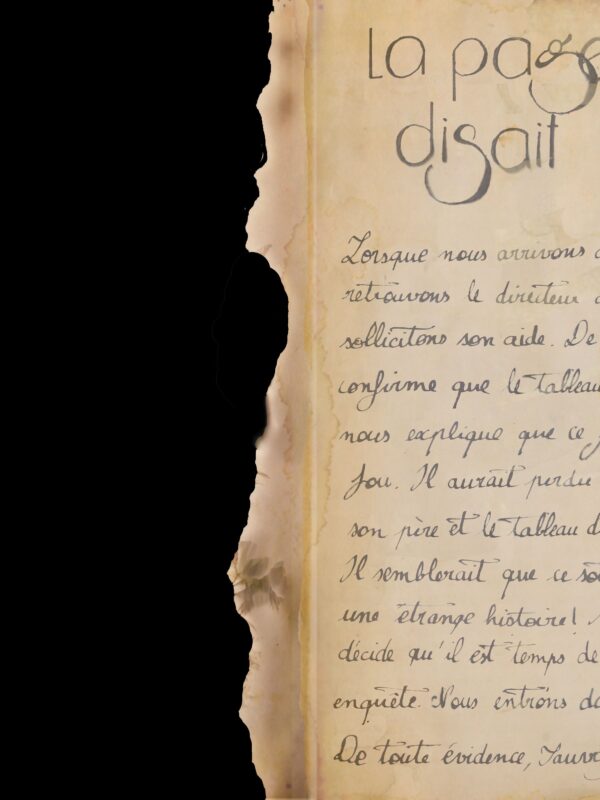 La page
disait
Lorsque nous arrivons
retrouvons le directeur
sollicitons son aide. De
confirme que le tableau
nous explique que ce
fou. Il aurait perdu
son père et le tableau d
Il semblerait que ce so
une étrange histoire!
décide qu'il est temps de
enquête. Nous entrons da
De toute évidence,